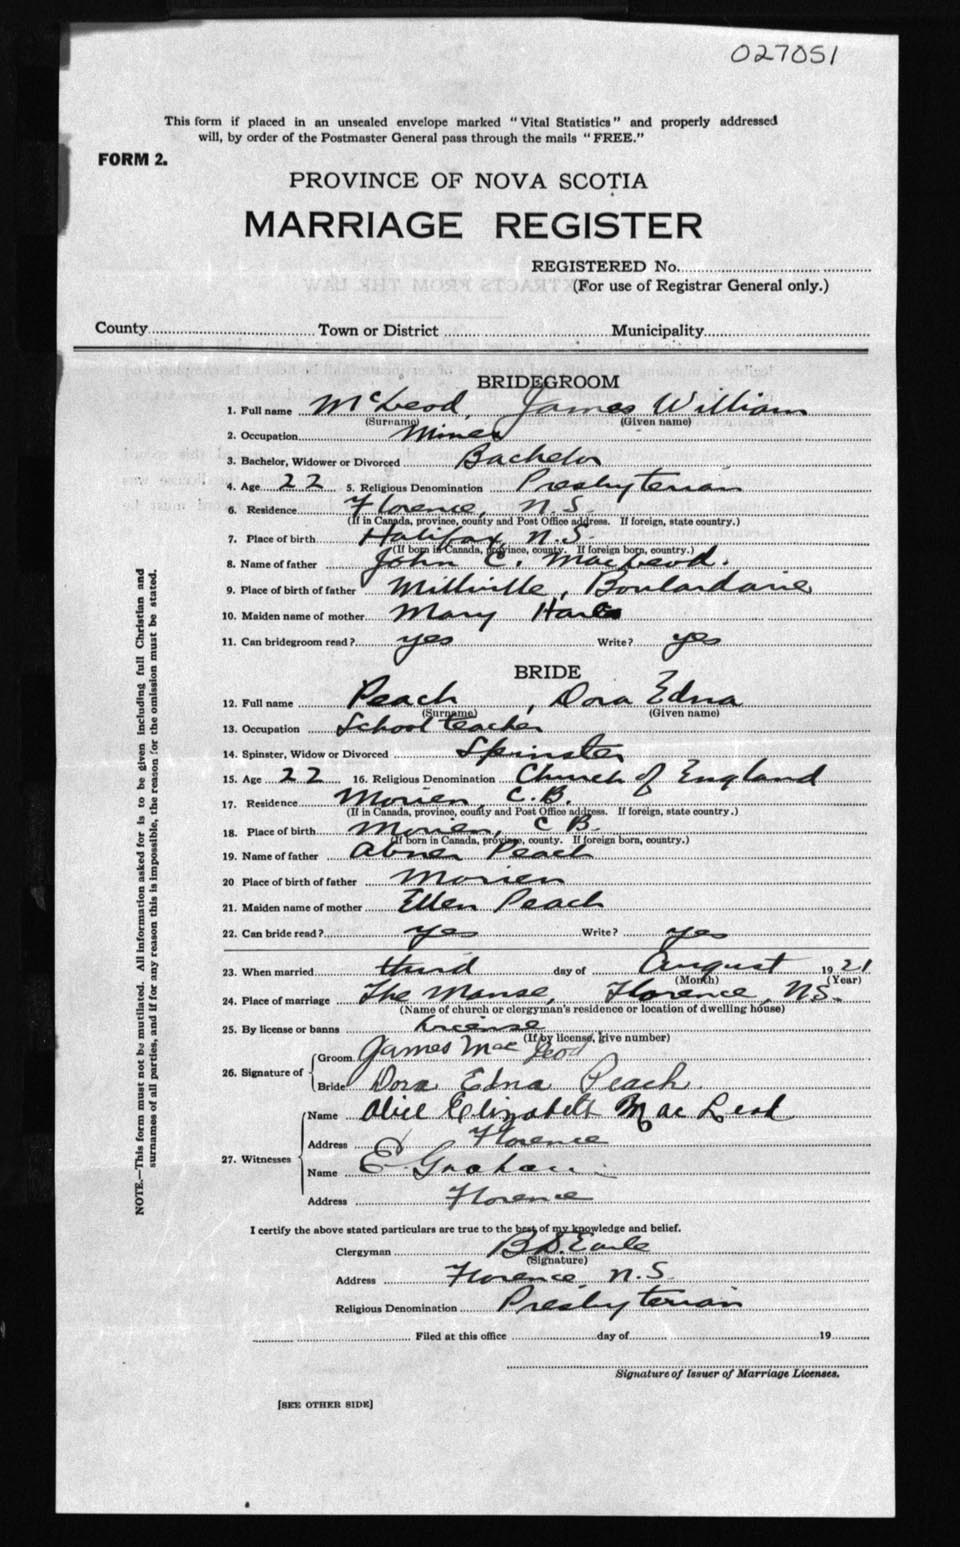 027051
This form if placed in an unsealed envelope marked "Vital Statistics" and properly addressed
will, by order of the Postmaster General pass through the mails "FREE."
FORM 2.
PROVINCE OF NOVA SCOTIA
MARRIAGE REGISTER
REGISTERED No.
(For use of Registrar General only.)
County Town or District Municipality
BRIDEGROOM
1. Full name McLeod, James William
(Surname) (Given name)
2. Occupation Miner
3. Bachelor, Widower or Divorced Bachelor
4. Age 22 5. Religious Denomination Presbyterian
6. Residence Florence, N.S.
(If in Canada, province, county and Post Office address. If foreign, state country.)
7. Place of birth Halifax, N.S.
(If born in Canada, province, county. If foreign born, country.)
8. Name of father John C. MacLeod.
9. Place of birth of father Millville, Boulardarie
10. Maiden name of mother Mary
11. Can bridegroom read? yes Write? yes
BRIDE
12. Full name Peach, Dora Edna
(Surname) (Given name)
13. Occupation School teacher
14. Spinster, Widow or Divorced Spinster
15. Age 22 16. Religious Denomination Church of England
17. Residence Morien, C.B.
(If in Canada, province, county and Post Office address. If foreign, state country.)
18. Place of birth Morien, C B.
(If born in Canada, province, county. If foreign born, country.)
19. Name of father Abner Peach
20 Place of birth of father Morien
21. Maiden name of mother Ellen Peach
22. Can bride read? yes Write? yes
23. When married third day of August 1921
(Month) (Year)
24. Place of marriage The Manse, Florence, N.S.
(Name of church or clergyman's residence or location of dwelling house)
25. By license or banns License
(If by license, give number)
26. Signature of Groom James MacLeod
Bride Dora Edna Peach.
27. Witnesses Name Alice Elizabeth MacLeod
Address Florence
Name E Graham
Address Florence
I certify the above stated particulars are true to the best of my knowledge and belief.
Clergyman B.D. Earle
(Signature)
Address Florence, N.S.
Religious Denomination Presbyterian
Filed at this office day of 19
Signature of Issuer of Marriage Licenses.
[SEE OTHER SIDE]
NOTE.—This form must not be mutilated. All information asked for is to be given including full Christian and
surnames of all parties, and if for any reason this is impossible, the reason for the omission must be stated.